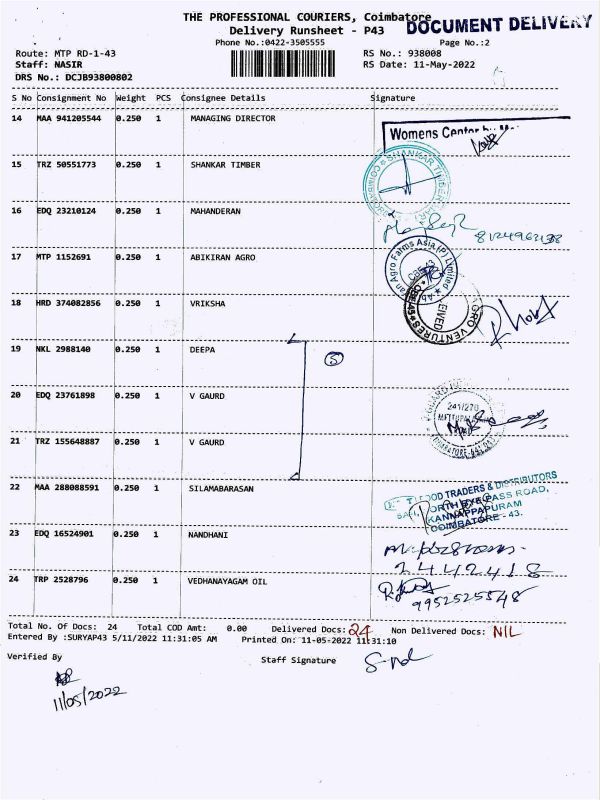 THE PROFESSIONAL COURIERS, Coimbatore
DOCUMENT DELIVERY
Delivery Runsheet - P43
Phone No.:0422-3505555
Page No.:2
Route: MTP RD-1-43
RS No.: 938008
Staff: NASIR
RS Date: 11-May-2022
DRS No.: DCJB93800802
S No Consignment No Weight PCS Consignee Details Signature
14 MAA 941205544 0.250 1 MANAGING DIRECTOR
Womens Center
15 TRZ 50551773 0.250 1 SHANKAR TIMBER
SHANKAR TIMBER
16 EDQ 23210124 0.250 1 MAHANDERAN
17 MTP 1152691 0.250 1 ABIKIRAN AGRO
Agro Farms Asia (P) Limited
18 HRD 374082856 0.250 1 VRIKSHA
AGRO VENTURES
19 NKL 2988140 0.250 1 DEEPA
5
20 EDQ 23761898 0.250 1 V GAURD
241/270
21 TRZ 155648887 0.250 1 V GAURD
22 MAA 288088591 0.250 1 SILAMABARASAN
FOOD TRADERS & DISTRIBUTORS
PASS ROAD,
KANNAPPAPURAM
COIMBATORE - 43.
23 EDQ 16524901 0.250 1 NANDHANI
2442418
24 TRP 2528796 0.250 1 VEDHANAYAGAM OIL
9952525548
Total No. Of Docs: 24 Total COD Amt: 0.00 Delivered Docs: 24 Non Delivered Docs: NIL
Entered By :SURYAP43 5/11/2022 11:31:05 AM Printed On: 11-05-2022 11:31:10
Verified By
Staff Signature
11/05/2022